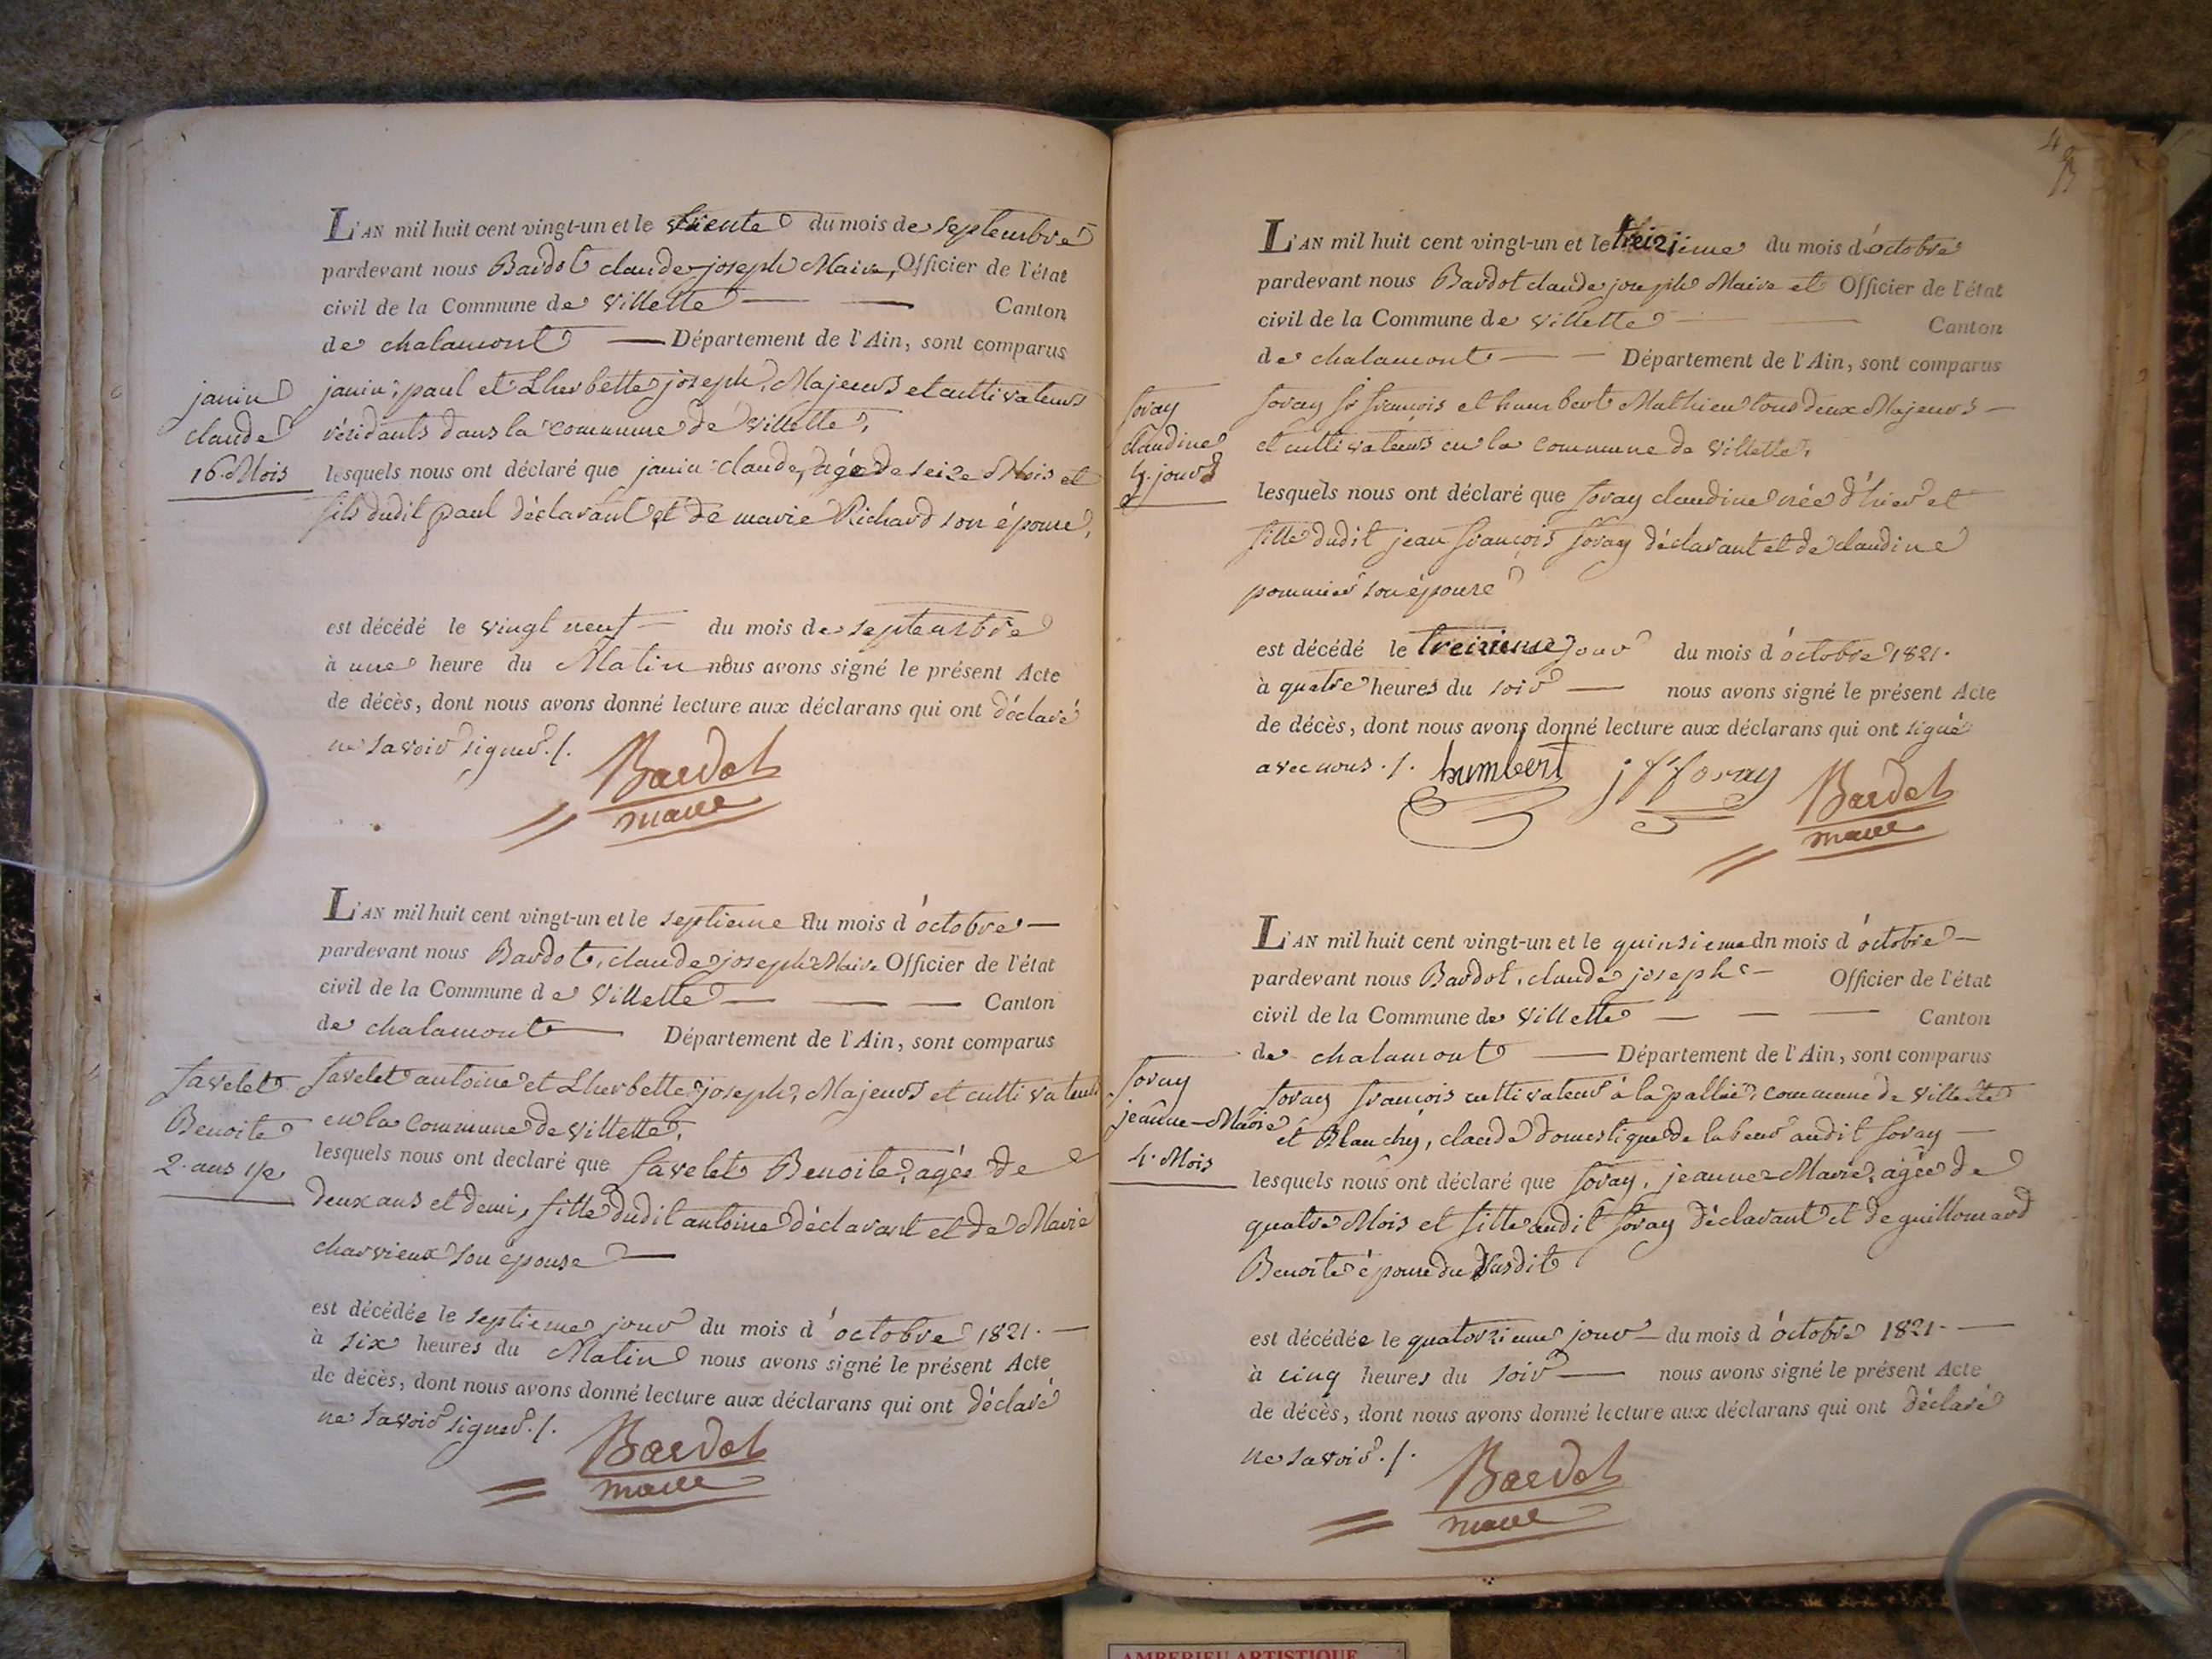 L'AN mil huit cent vingt-un et le trente du mois de septembre
pardevant nous Bardot claude joseph Maire, Officier de l'état
civil de la Commune de Villette Canton
de chalamont Département de l'Ain, sont comparus
janin claude 16 Mois
janin, paul et Lherbette joseph, Majeurs et cultivateurs
résidants dans la commune de Villette,
lesquels nous ont déclaré que janin claude, agé de seize Mois et
fils dudit paul déclarant et de marie Richard son épouse,
est décédé le vingt neuf du mois de septembre
à une heure du Matin nous avons signé le présent Acte
de décès, dont nous avons donné lecture aux déclarans qui ont déclaré
ne savoir signer ./.
Bardot
maire
L'AN mil huit cent vingt-un et le septieme du mois d'octobre
pardevant nous Bardot, claude joseph Maire Officier de l'état
civil de la Commune de Villette Canton
de chalamont Département de l'Ain, sont comparus
favelet
Benoite
2 ans 1/2
favelet antoine et Lherbette joseph, Majeurs et cultivateurs
en la commune de Villette,
lesquels nous ont declaré que favelet Benoite, agée de
deux ans et demi, fille dudit antoine déclarant et de Marie
charvieux son épouse
est décédée le septieme jour du mois d'octobre 1821.
à six heures du Matin nous avons signé le présent Acte
de décès, dont nous avons donné lecture aux déclarans qui ont déclaré
ne savoir signer ./.
Bardot
maire
L'AN mil huit cent vingt-un et le treizieme du mois d'octobre
pardevant nous Bardot claude joseph Maire et Officier de l'état
civil de la Commune de Villette Canton
de chalamont Département de l'Ain, sont comparus
foray
claudine
foray jn françois et humbert Mathieu tous deux Majeurs
et cultivateurs en la commune de Villette,
lesquels nous ont déclaré que foray claudine née d'hier et
fille dudit jean françois foray déclarant et de claudine
pommier son épouse
est décédé le treizieme jour du mois d'octobre 1821.
à quatre heures du soir nous avons signé le présent Acte
de décès, dont nous avons donné lecture aux déclarans qui ont signé
avec nous ./. humbert jf foray Bardot
maire
L'AN mil huit cent vingt-un et le quinsieme dn mois d'octobre
pardevant nous Bardot, claude joseph Officier de l'état
civil de la Commune de Villette Canton
de chalamont Département de l'Ain, sont comparus
foray
jeanne-Marie
4 Mois
foray françois cultivateur à la commune de Villette
et Blanchy, claude domestique de labeur audit foray
lesquels nous ont déclaré que foray, jeanne Marie, agée de
quatre Mois et fille audit foray déclarant et de guillomard
Benoite épouse du susdit
est décédée le quatorzieme jour du mois d'octobre 1821.
à cinq heures du soir nous avons signé le présent Acte
de décès, dont nous avons donné lecture aux déclarans qui ont déclaré
ne savoir ./.
Bardot
maire
AMBERIEU ARTISTIQUE